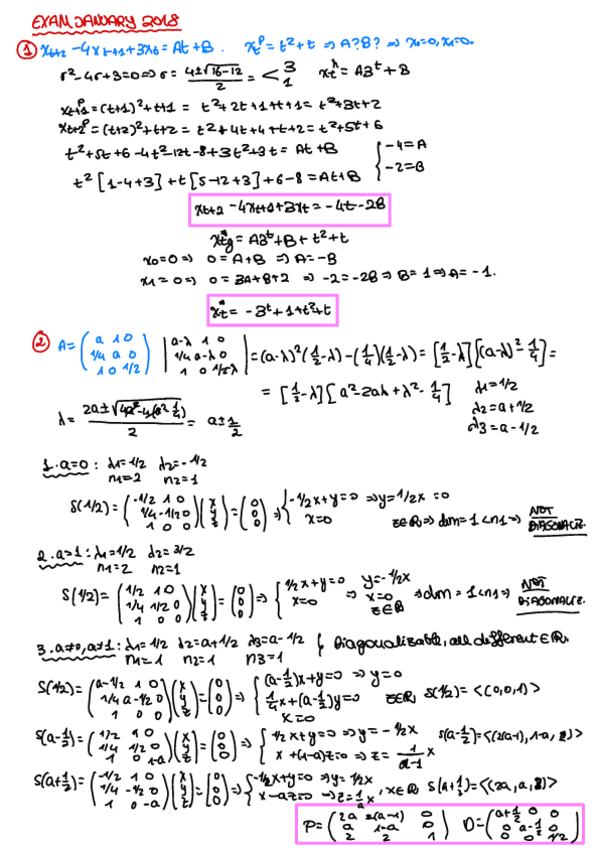 EXAM JANUARY 2018
① x_{t+2} - 4x_{t+1} + 3x_t = At + B. x_t^p = t² + t ⇒ A? B? ⇒ x_0 = 0, x_1 = 0.
r² - 4r + 3 = 0 ⇒ r = (4 ± √(16-12))/2 = < 3 1 x_t^h = A3^t + B
x_{t+1}^p = (t+1)² + t+1 = t² + 2t + 1 + t + 1 = t² + 3t + 2
x_{t+2}^p = (t+2)² + t+2 = t² + 4t + 4 + t + 2 = t² + 5t + 6
t² + 5t + 6 - 4t² - 12t - 8 + 3t² + 3t = At + B { -4 = A
t² [1-4+3] + t [5-12+3] + 6-8 = At + B -2 = B
x_{t+2} - 4x_{t+1} + 3x_t = -4t - 2B
x_{tg}^* = A3^t + B + t² + t
x_0 = 0 ⇒ 0 = A + B ⇒ A = -B
x_1 = 0 ⇒ 0 = 3A + B + 2 ⇒ -2 = -2B ⇒ B = 1 ⇒ A = -1.
x_t^* = -3^t + 1 + t² + t
② A = (a 1 0; 1/4 a 0; 1 0 1/2) |a-λ 1 0; 1/4 a-λ 0; 1 0 1/2-λ| = (a-λ)² (1/2-λ) - (1/4)(1/2-λ) = [1/2-λ][(a-λ)² - 1/4] =
= [1/2-λ][a² - 2aλ + λ² - 1/4] λ1 = 1/2
λ2 = a + 1/2
λ = (2a ± √(4a² - 4(a² - 1/4)))/2 = a ± 1/2 λ3 = a - 1/2
1. a=0 : λ1 = 1/2 λ2 = -1/2
n1 = 2 n2 = 1
S(1/2) = (-1/2 1 0; 1/4 -1/2 0; 1 0 0)(x; y; z) = (0; 0; 0) ⇒ { -1/2x + y = 0 ⇒ y = 1/2x = 0; x = 0 z∈R ⇒ dim = 1 < n1 ⇒ NOT DIAGONALIZ.
2. a=1 : λ1 = 1/2 λ2 = 3/2
n1 = 2 n2 = 1
S(1/2) = (1/2 1 0; 1/4 1/2 0; 1 0 0)(x; y; z) = (0; 0; 0) ⇒ { 1/2x + y = 0; x = 0 ⇒ y = -1/2x; x = 0; z∈R ⇒ dim = 1 < n1 ⇒ NOT DIAGONALIZ.
3. a≠0, a≠1 : λ1 = 1/2 λ2 = a+1/2 λ3 = a-1/2 { Diagonalizable, all different ∈R.
n1 = 1 n2 = 1 n3 = 1
S(1/2) = (a-1/2 1 0; 1/4 a-1/2 0; 1 0 0)(x; y; z) = (0; 0; 0) ⇒ { (a-1/2)x + y = 0 ⇒ y = 0; 1/4x + (a-1/2)y = 0; x = 0 z∈R S(1/2) = <(0,0,1)>
S(a-1/2) = (1/2 1 0; 1/4 1/2 0; 1 0 1-a)(x; y; z) = (0; 0; 0) ⇒ { 1/2x + y = 0 ⇒ y = -1/2x; x + (1-a)z = 0 ⇒ z = 1/(a-1) x S(a-1/2) = <(2(a-1), 1-a, 2)>
S(a+1/2) = (-1/2 1 0; 1/4 -1/2 0; 1 0 -a)(x; y; z) = (0; 0; 0) ⇒ { -1/2x + y = 0 ⇒ y = 1/2x; x - az = 0 ⇒ z = 1/a x, x∈R S(a+1/2) = <(2a, a, 2)>
P = (2a 2(a-1) 0; a 1-a 0; 2 2 1) D = (a+1/2 0 0; 0 a-1/2 0; 0 0 1/2)